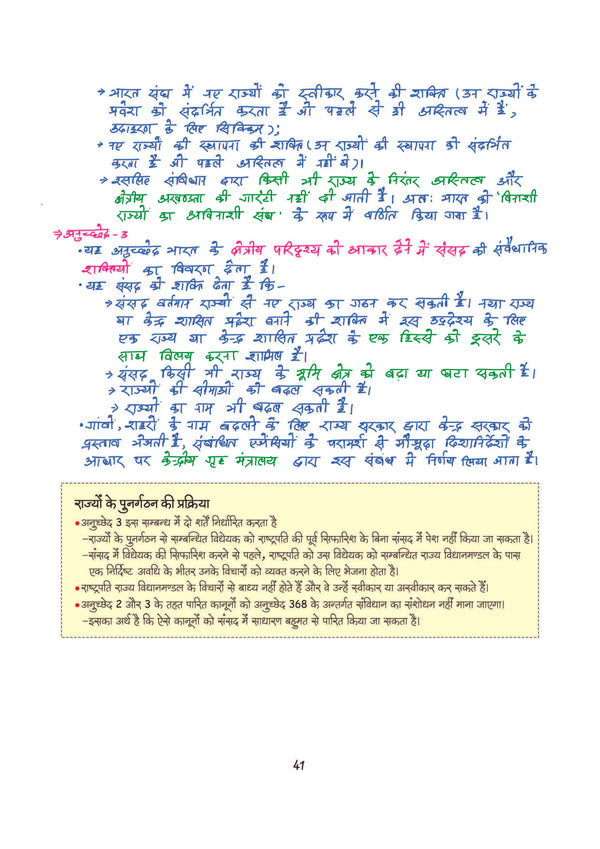 → भारत संघ में नए राज्यों को स्वीकार करने की शक्ति (उन राज्यों के
प्रवेश को संदर्भित करता है जो पहले से ही अस्तित्व में हैं,
उदाहरण के लिए सिक्किम);
→ नए राज्यों की स्थापना की शक्ति (उन राज्यों की स्थापना को संदर्भित
करता है जो पहले अस्तित्व में नहीं थे)।
→ इसलिए संविधान द्वारा किसी भी राज्य के निरंतर अस्तित्व और
क्षेत्रीय अखण्डता की गारंटी नहीं दी जाती है। अतः भारत को 'विनाशी
राज्यों का अविनाशी संघ' के रूप में वर्णित किया गया है।
⇒ अनुच्छेद - 3
• यह अनुच्छेद भारत के क्षेत्रीय परिदृश्य को आकार देने में संसद की संवैधानिक
शक्तियों का विवरण देता है।
• यह संसद को शक्ति देता है कि-
→ संसद वर्तमान राज्यों से नए राज्य का गठन कर सकती है। नया राज्य
या केन्द्र शासित प्रदेश बनाने की शक्ति में इस उद्देश्य के लिए
एक राज्य या केन्द्र शासित प्रदेश के एक हिस्से को दूसरे के
साथ विलय करना शामिल है।
→ संसद किसी भी राज्य के भूमि क्षेत्र को बढ़ा या घटा सकती है।
→ राज्यों की सीमाओं को बदल सकती है।
→ राज्यों का नाम भी बदल सकती है।
• गांवों, शहरों के नाम बदलने के लिए राज्य सरकार द्वारा केन्द्र सरकार को
प्रस्ताव भेजती है, संबंधित एजेंसियों के परामर्श से मौजूदा दिशानिर्देशों के
आधार पर केन्द्रीय गृह मंत्रालय द्वारा इस संबंध में निर्णय लिया जाता है।
राज्यों के पुनर्गठन की प्रक्रिया
• अनुच्छेद 3 इस सम्बन्ध में दो शर्तें निर्धारित करता है
–राज्यों के पुनर्गठन से सम्बन्धित विधेयक को राष्ट्रपति की पूर्व सिफारिश के बिना संसद में पेश नहीं किया जा सकता है।
–संसद में विधेयक की सिफारिश करने से पहले, राष्ट्रपति को उस विधेयक को सम्बन्धित राज्य विधानमण्डल के पास
एक निर्दिष्ट अवधि के भीतर उनके विचारों को व्यक्त करने के लिए भेजना होता है।
• राष्ट्रपति राज्य विधानमण्डल के विचारों से बाध्य नहीं होते हैं और वे उन्हें स्वीकार या अस्वीकार कर सकते हैं।
• अनुच्छेद 2 और 3 के तहत पारित कानूनों को अनुच्छेद 368 के अन्तर्गत संविधान का संशोधन नहीं माना जाएगा।
–इसका अर्थ है कि ऐसे कानूनों को संसद में साधारण बहुमत से पारित किया जा सकता है।
41